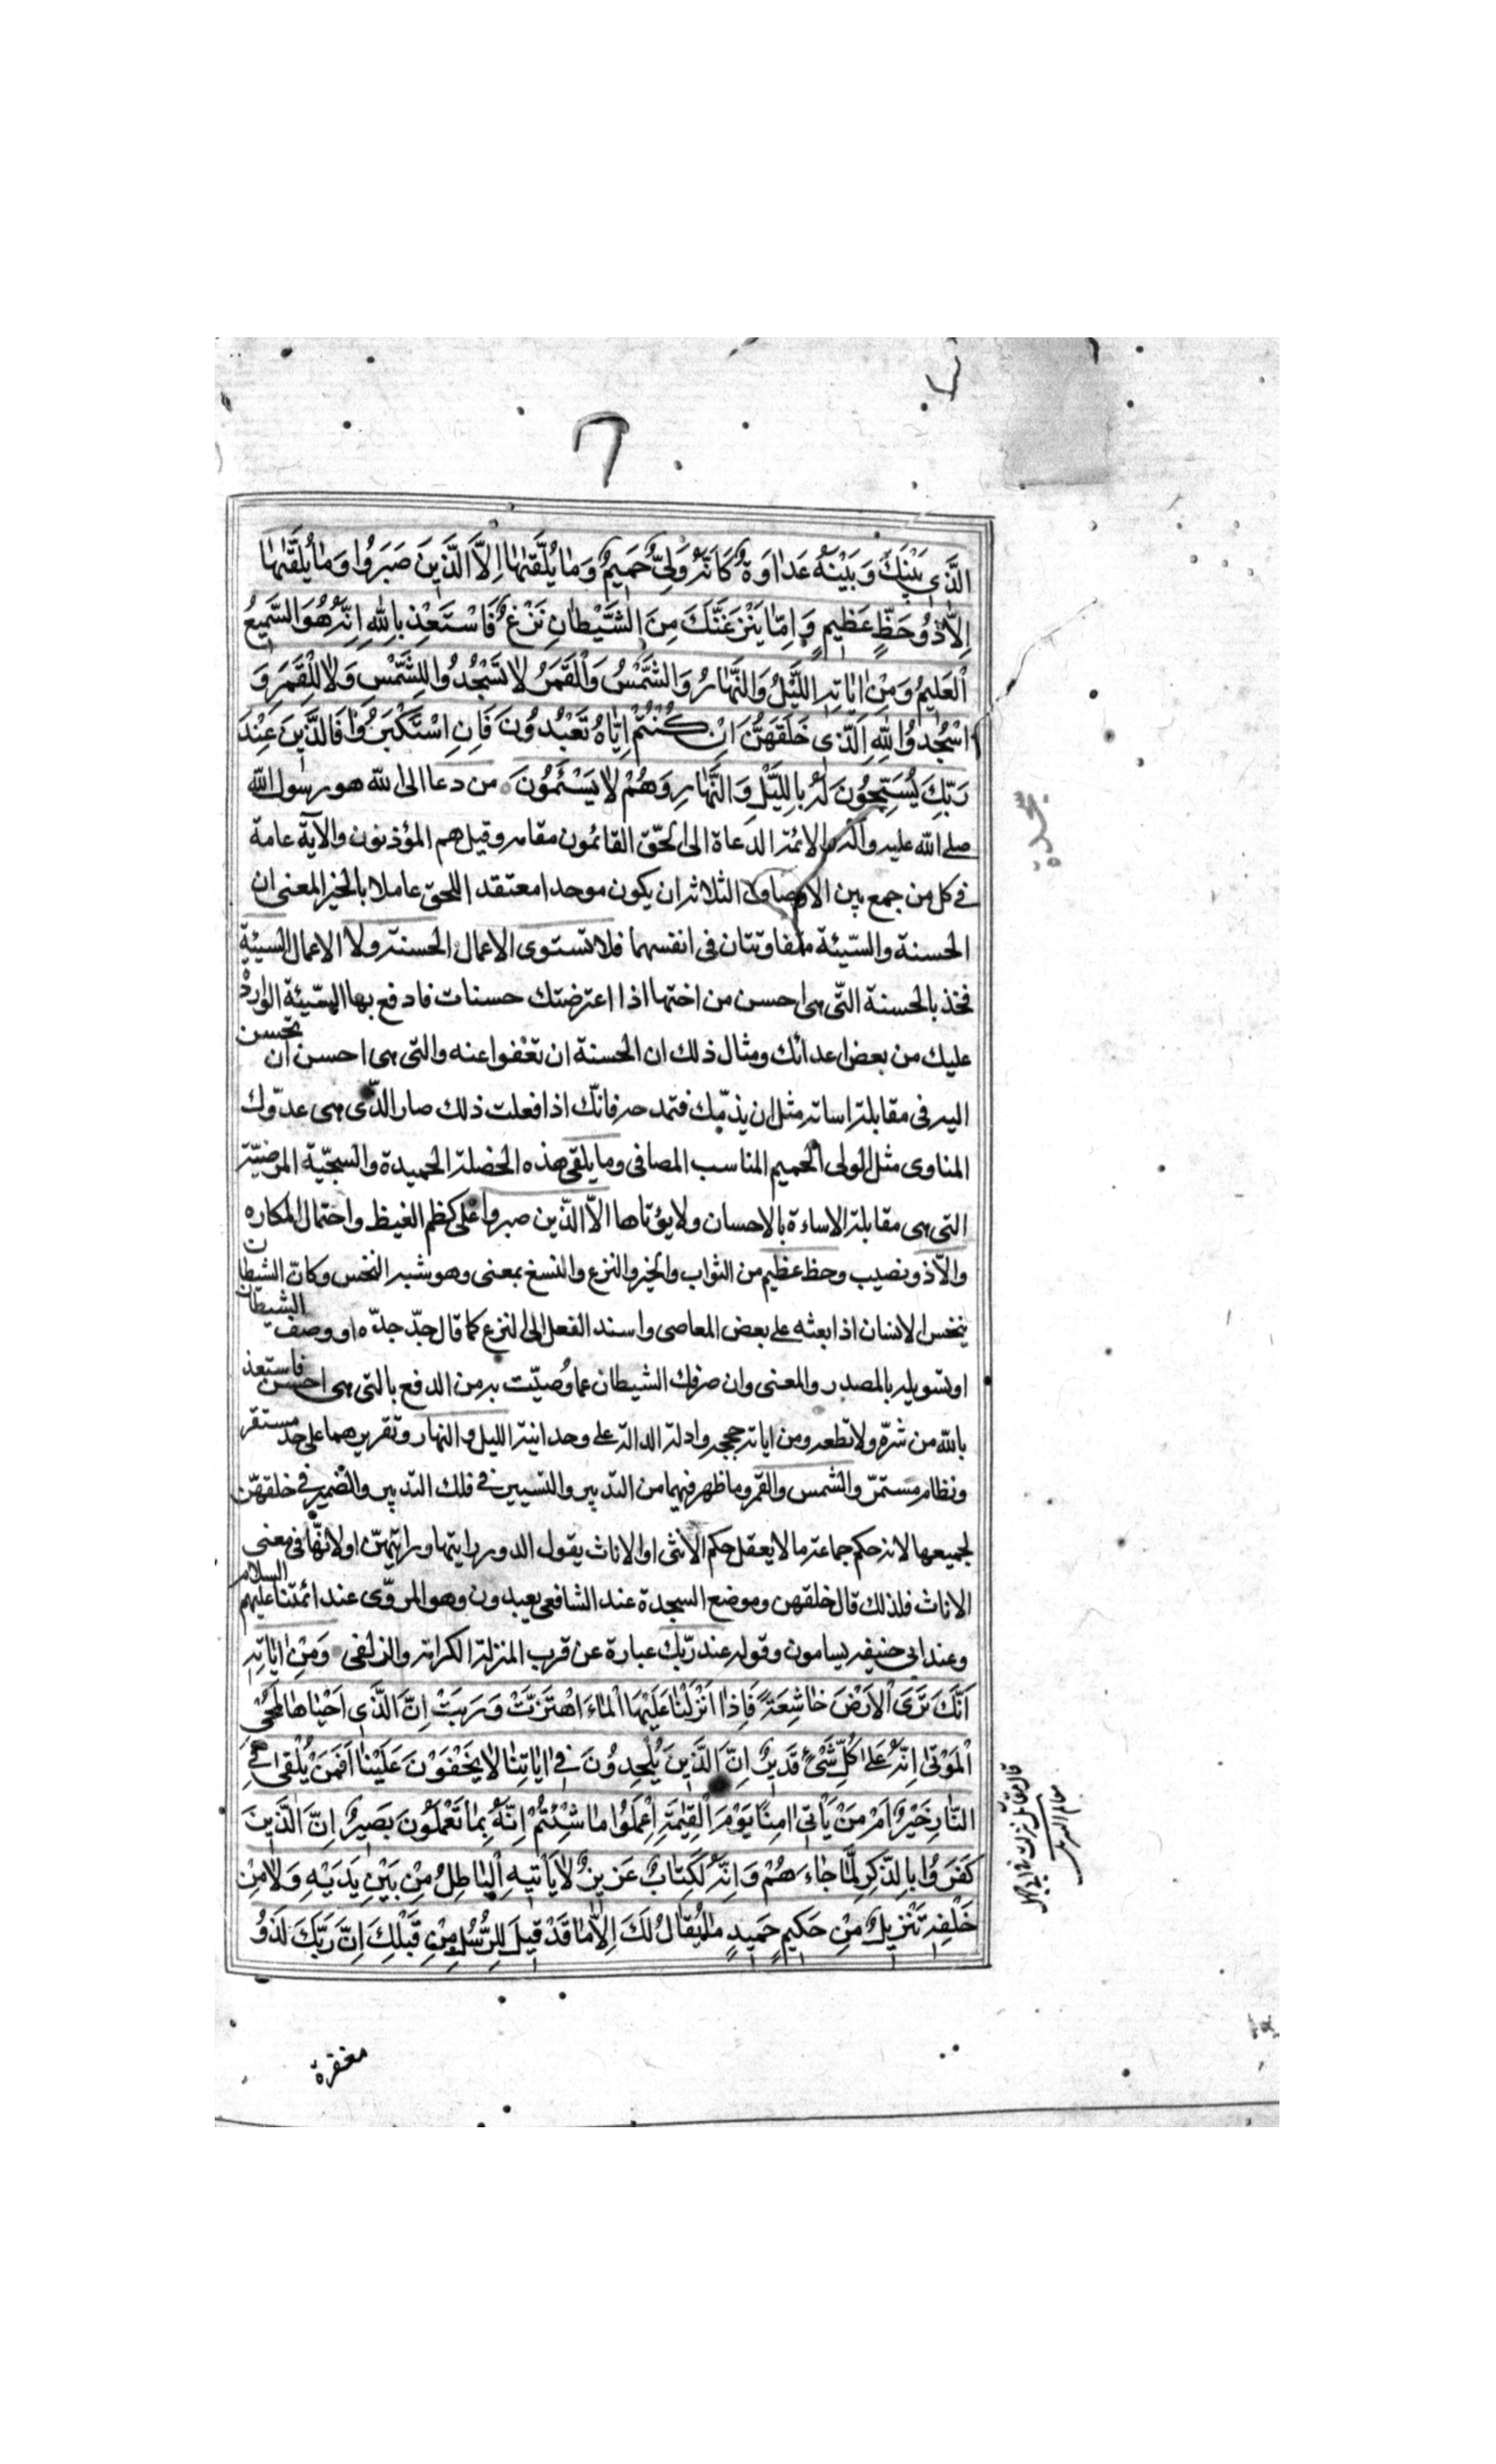 الَّذِي بَيْنَكَ وَبَيْنَهُ عَدَاوَةٌ كَاَنَّهُ وَلِيٌّ حَمِيمٌ وَمَا يُلَقَّيٰهَا اِلَّا الَّذِينَ صَبَرُوا وَمَا يُلَقَّيٰهَا
اِلَّا ذُو حَظٍّ عَظِيمٍ وَاِمَّا يَنْزَغَنَّكَ مِنَ الشَّيْطَانِ نَزْغٌ فَاسْتَعِذْ بِاللهِ اِنَّهُ هُوَ السَّمِيعُ
الْعَلِيمُ وَمِنْ اٰيَاتِهِ اللَّيْلُ وَالنَّهَارُ وَالشَّمْسُ وَالْقَمَرُ لَا تَسْجُدُوا لِلشَّمْسِ وَلَا لِلْقَمَرِ وَ
اسْجُدُوا لِلّٰهِ الَّذِي خَلَقَهُنَّ اِنْ كُنْتُمْ اِيَّاهُ تَعْبُدُونَ فَاِنِ اسْتَكْبَرُوا فَالَّذِينَ عِنْدَ
رَبِّكَ يُسَبِّحُونَ لَهُ بِاللَّيْلِ وَالنَّهَارِ وَهُمْ لَا يَسْئَمُونَ من دعا الى الله هو رسول الله
صلى الله عليه وآله والائمة الدعاة الى الحقّ القائمون مقامه وقيل هم المؤذنون والآية عامة
فى كل من جمع بين الاوصاف الثلاثة ان يكون موحدا معتقدا للحق عاملا بالخير المعنى ان
الحسنة والسّيئة متفاوتتان فى انفسهما فلا تستوى الاعمال الحسنة ولا الاعمال السيئة
فخذ بالحسنة التّى هى احسن من اختها اذا اعترضتك حسنات فادفع بها السّيئة الواردة
عليك من بعض اعدائك ومثال ذلك ان الحسنة ان تعفوا عنه والتى هى احسن ان تحسن
اليه فى مقابلة اساته مثل ان يذمّك فتمدحه فانّك اذا فعلت ذلك صار الذّى هى عدّوك
المناوى مثل الولى الحميم المناسب المصافى وما يلقى هذه الخصلة الحميدة والسجيّة المرضيّة
التى هى مقابلة الاساءة بالاحسان ولا يؤتاها الّا الذّين صبروا على كظم الغيظ واحتمال المكاره
والّا ذو نصيب وحظ عظيم من الثواب والخير والنزع والنسغ بمعنى وهو شبه النخس وكانّ الشيطان
ينخس الانسان اذا بعثه على بعض المعاصى واسند الفعل الى النزع كما قال جدّ جدّه او وصف الشيطان
او تسويله بالمصدر والمعنى وان صرفك الشيطان عما وُصيّت به من الدفع بالتى هى احسن فاستعذ
بالله من شرّه ولا تطعه ومن اياته حججه وادلة الدالة على وحدانية الليل والنهار وتقريرهما على حد مستقر
ونظام مستمرّ والشمس والقمر وما ظهر فيهما من التدبير والتسيير فى فلك التدبير والضمير فى خلقهنّ
لجميعها لانه حكم جماعة ما لا يعقل حكم الانثى او الاناث يقول الدور رايتها ورايتهنّ او لانهّا فى معنى
الاناث فلذلك قال خلقهن وموضع السجدة عند الشافعى يعبدون وهو المروّى عند ائمتنا عليهم السلام
وعند ابى حنيفه يسامون وقوله عند ربّك عبارة عن قرب المنزلة الكرامة والزلفى وَمِنْ اٰيَاتِهِ
اَنَّكَ تَرَى الْاَرْضَ خَاشِعَةً فَاِذَا اَنْزَلْنَا عَلَيْهَا الْمَاءَ اهْتَزَّتْ وَرَبَتْ اِنَّ الَّذِي اَحْيَاهَا لَمُحْيِ
الْمَوْتَى اِنَّهُ عَلَى كُلِّ شَيْءٍ قَدِيرٌ اِنَّ الَّذِينَ يُلْحِدُونَ فِي اٰيَاتِنَا لَا يَخْفَوْنَ عَلَيْنَا اَفَمَنْ يُلْقَى فِي
النَّارِ خَيْرٌ اَمْ مَنْ يَاْتِي اٰمِنًا يَوْمَ الْقِيٰمَةِ اِعْمَلُوا مَا شِئْتُمْ اِنَّهُ بِمَا تَعْمَلُونَ بَصِيرٌ اِنَّ الَّذِينَ
كَفَرُوا بِالذِّكْرِ لَمَّا جَاءَهُمْ وَاِنَّهُ لَكِتَابٌ عَزِيزٌ لَا يَاْتِيهِ الْبَاطِلُ مِنْ بَيْنِ يَدَيْهِ وَلَا مِنْ
خَلْفِهِ تَنْزِيلٌ مِنْ حَكِيمٍ حَمِيدٍ مَا يُقَالُ لَكَ اِلَّا مَا قَدْ قِيلَ لِلرُّسُلِ مِنْ قَبْلِكَ اِنَّ رَبَّكَ لَذُو
مغفرة
قال مقاتل نزلت فى ابى جهل
معالم التنزيل